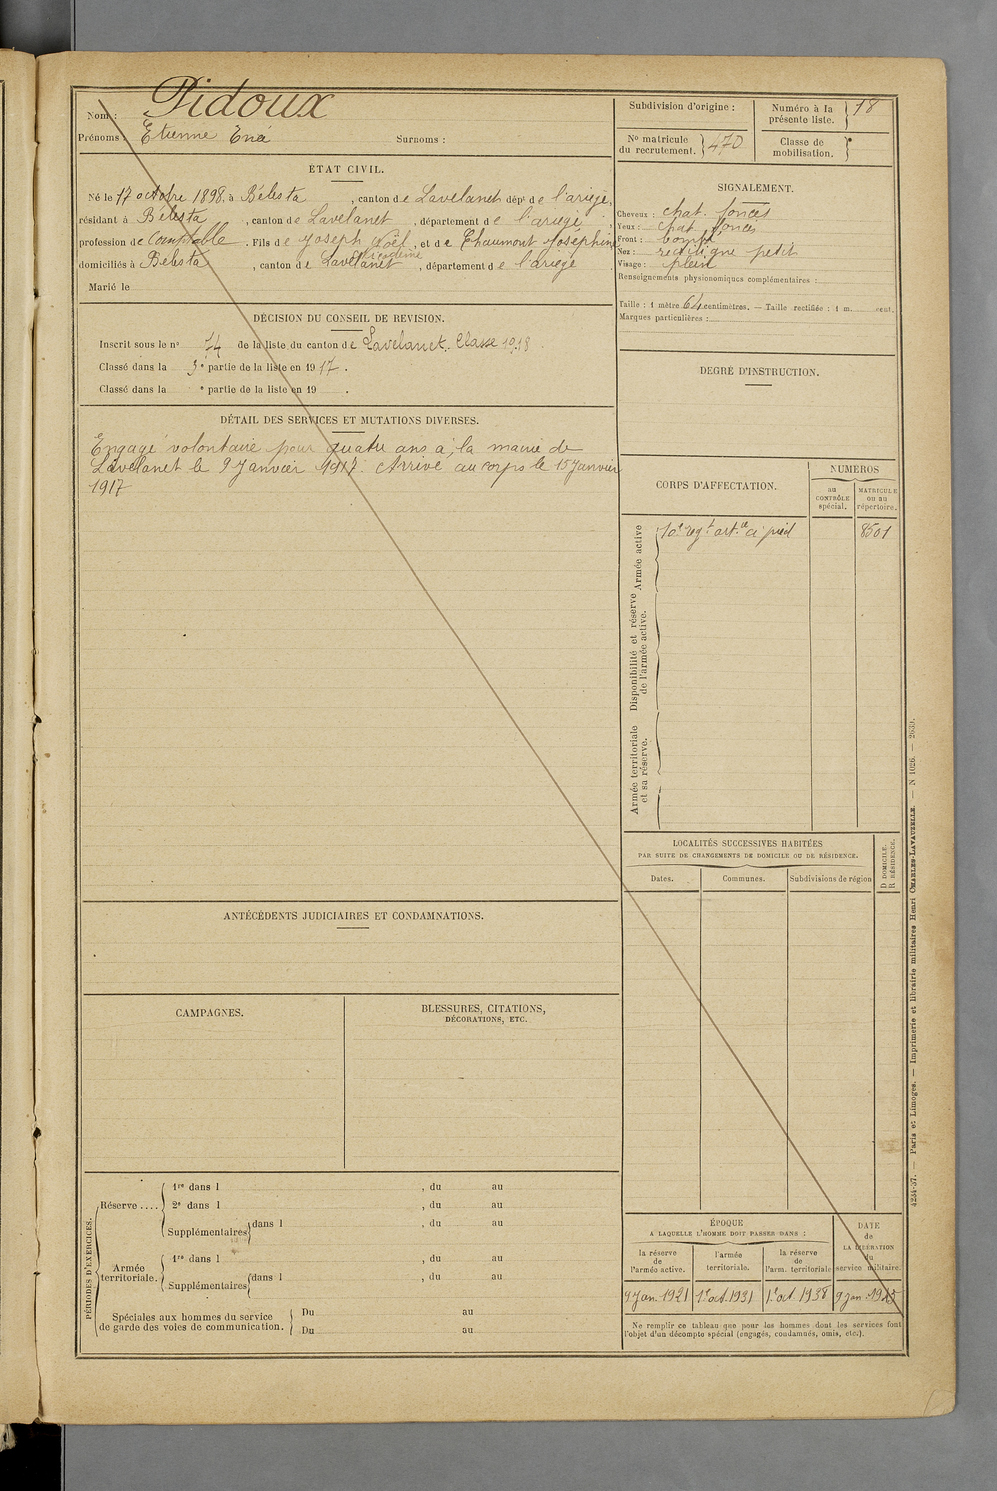 Nom : Pidoux
Prénoms : Etienne Surnoms :
Subdivision d'origine :
Numéro à la présente liste. 18
No matricule du recrutement. 470
Classe de mobilisation.
ÉTAT CIVIL.
Né le 17 octobre 1898, à Bélesta, canton de Lavelanet dépt de l'ariège,
résidant à Bélesta, canton de Lavelanet, département de l'ariège,
profession de comptable. Fils de Joseph Noël, et de Chaumont Joséphine
domiciliés à Bélesta, canton de Lavelanet, département de l'ariège
Marié le
SIGNALEMENT.
Cheveux : chat. foncés
Yeux : chat foncés
Front : bombé
Nez : rectiligne petit
Visage : plein
Renseignements physionomiques complémentaires :
Taille : 1 mètre 64 centimètres. — Taille rectifiée : 1 m. cent.
Marques particulières :
DÉCISION DU CONSEIL DE REVISION.
Inscrit sous le no 74 de la liste du canton de Lavelanet. Classe 1918.
Classé dans la 3e partie de la liste en 1917.
Classé dans la e partie de la liste en 19 .
DEGRÉ D'INSTRUCTION.
DÉTAIL DES SERVICES ET MUTATIONS DIVERSES.
Engagé volontaire pour quatre ans à la mairie de
Lavelanet le 9 Janvier 1917. Arrivé au corps le 15 Janvier
1917
CORPS D'AFFECTATION.
NUMÉROS
au CONTRÔLE spécial.
MATRICULE ou au répertoire.
Armée active
10e regt art.ie à pied 8501
Disponibilité et réserve de l'armée active.
Armée territoriale et sa réserve.
LOCALITÉS SUCCESSIVES HABITÉES
PAR SUITE DE CHANGEMENTS DE DOMICILE OU DE RÉSIDENCE.
Dates. Communes. Subdivisions de région
D DOMICILE.
R RÉSIDENCE.
ANTÉCÉDENTS JUDICIAIRES ET CONDAMNATIONS.
CAMPAGNES.
BLESSURES, CITATIONS,
DÉCORATIONS, ETC.
PÉRIODES D'EXERCICES.
Réserve ....
1re dans l , du au
2e dans l , du au
Supplémentaires dans l , du au
Armée territoriale.
1re dans l , du au
Supplémentaires dans l , du au
Spéciales aux hommes du service
de garde des voies de communication.
Du au
Du au
ÉPOQUE
A LAQUELLE L'HOMME DOIT PASSER DANS :
la réserve de l'armée active.
l'armée territoriale.
la réserve de l'arm. territoriale
DATE de LA LIBÉRATION du service militaire.
9 Jan. 1921 1er oct. 1931 1er oct. 1938 9 jan. 1945
Ne remplir ce tableau que pour les hommes dont les services font
l'objet d'un décompte spécial (engagés, condamnés, omis, etc.).
4234-37. — Paris et Limoges. — Imprimerie et librairie militaires Henri CHARLES-LAVAUZELLE. — N 1026. — 2639.